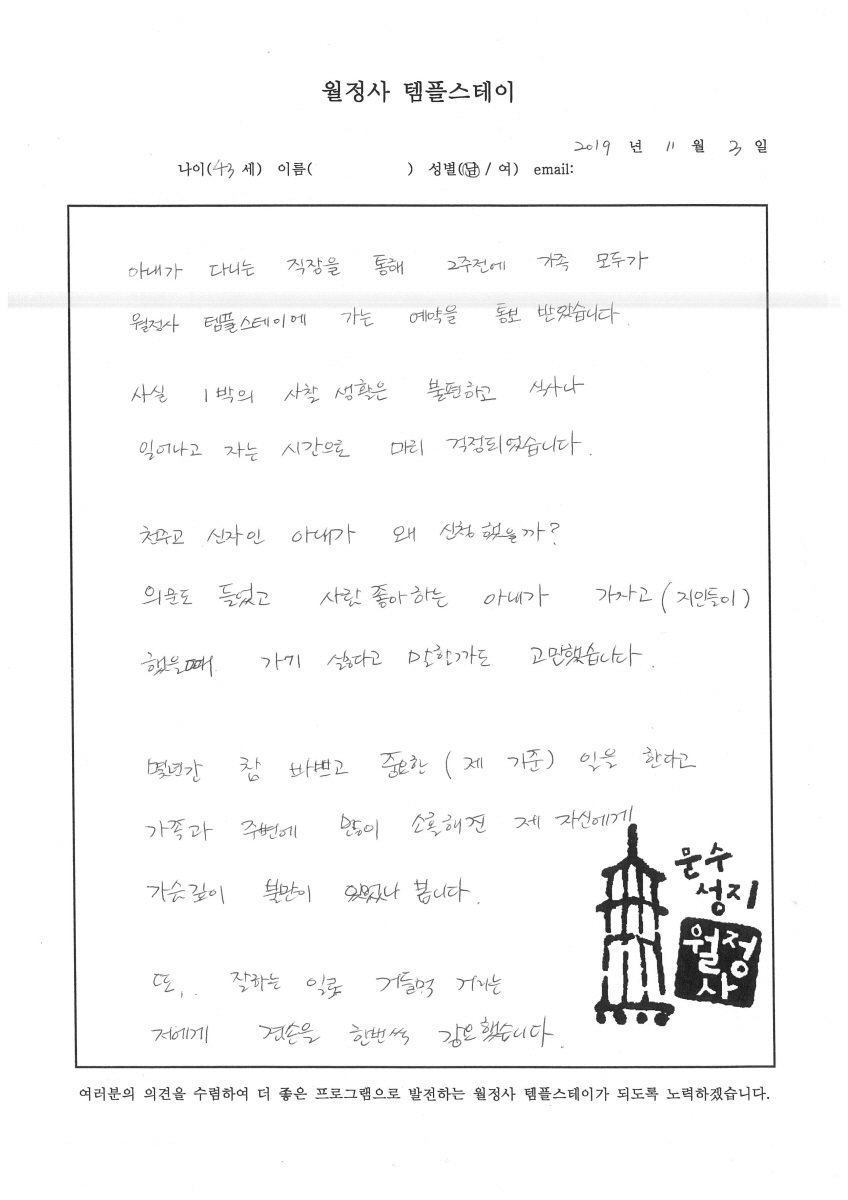 월정사 템플스테이
2019 년 11 월 3 일
나이(43 세) 이름( ) 성별(남 / 여) email:
아내가 다니는 직장을 통해 2주전에 가족 모두가
월정사 템플스테이에 가는 예약을 통보 받았습니다.
사실 1박의 사찰 생활은 불편하고 식사나
일어나고 자는 시간으로 미리 걱정되었습니다.
천주교 신자인 아내가 왜 신청했을까?
의문도 들었고 사람 좋아하는 아내가 가자고 (지인들이)
했을때 가기 싫다고 말할까도 고민했습니다.
몇년간 참 바쁘고 중요한 (제 기준) 일을 한다고
가족과 주변에 많이 소홀해진 제 자신에게
가슴깊이 불만이 있었나 봅니다.
또, 잘하는 일로 거들먹 거리는
저에게 겸손을 한번씩 강요했습니다.
문수
성지
월정
사
여러분의 의견을 수렴하여 더 좋은 프로그램으로 발전하는 월정사 템플스테이가 되도록 노력하겠습니다.